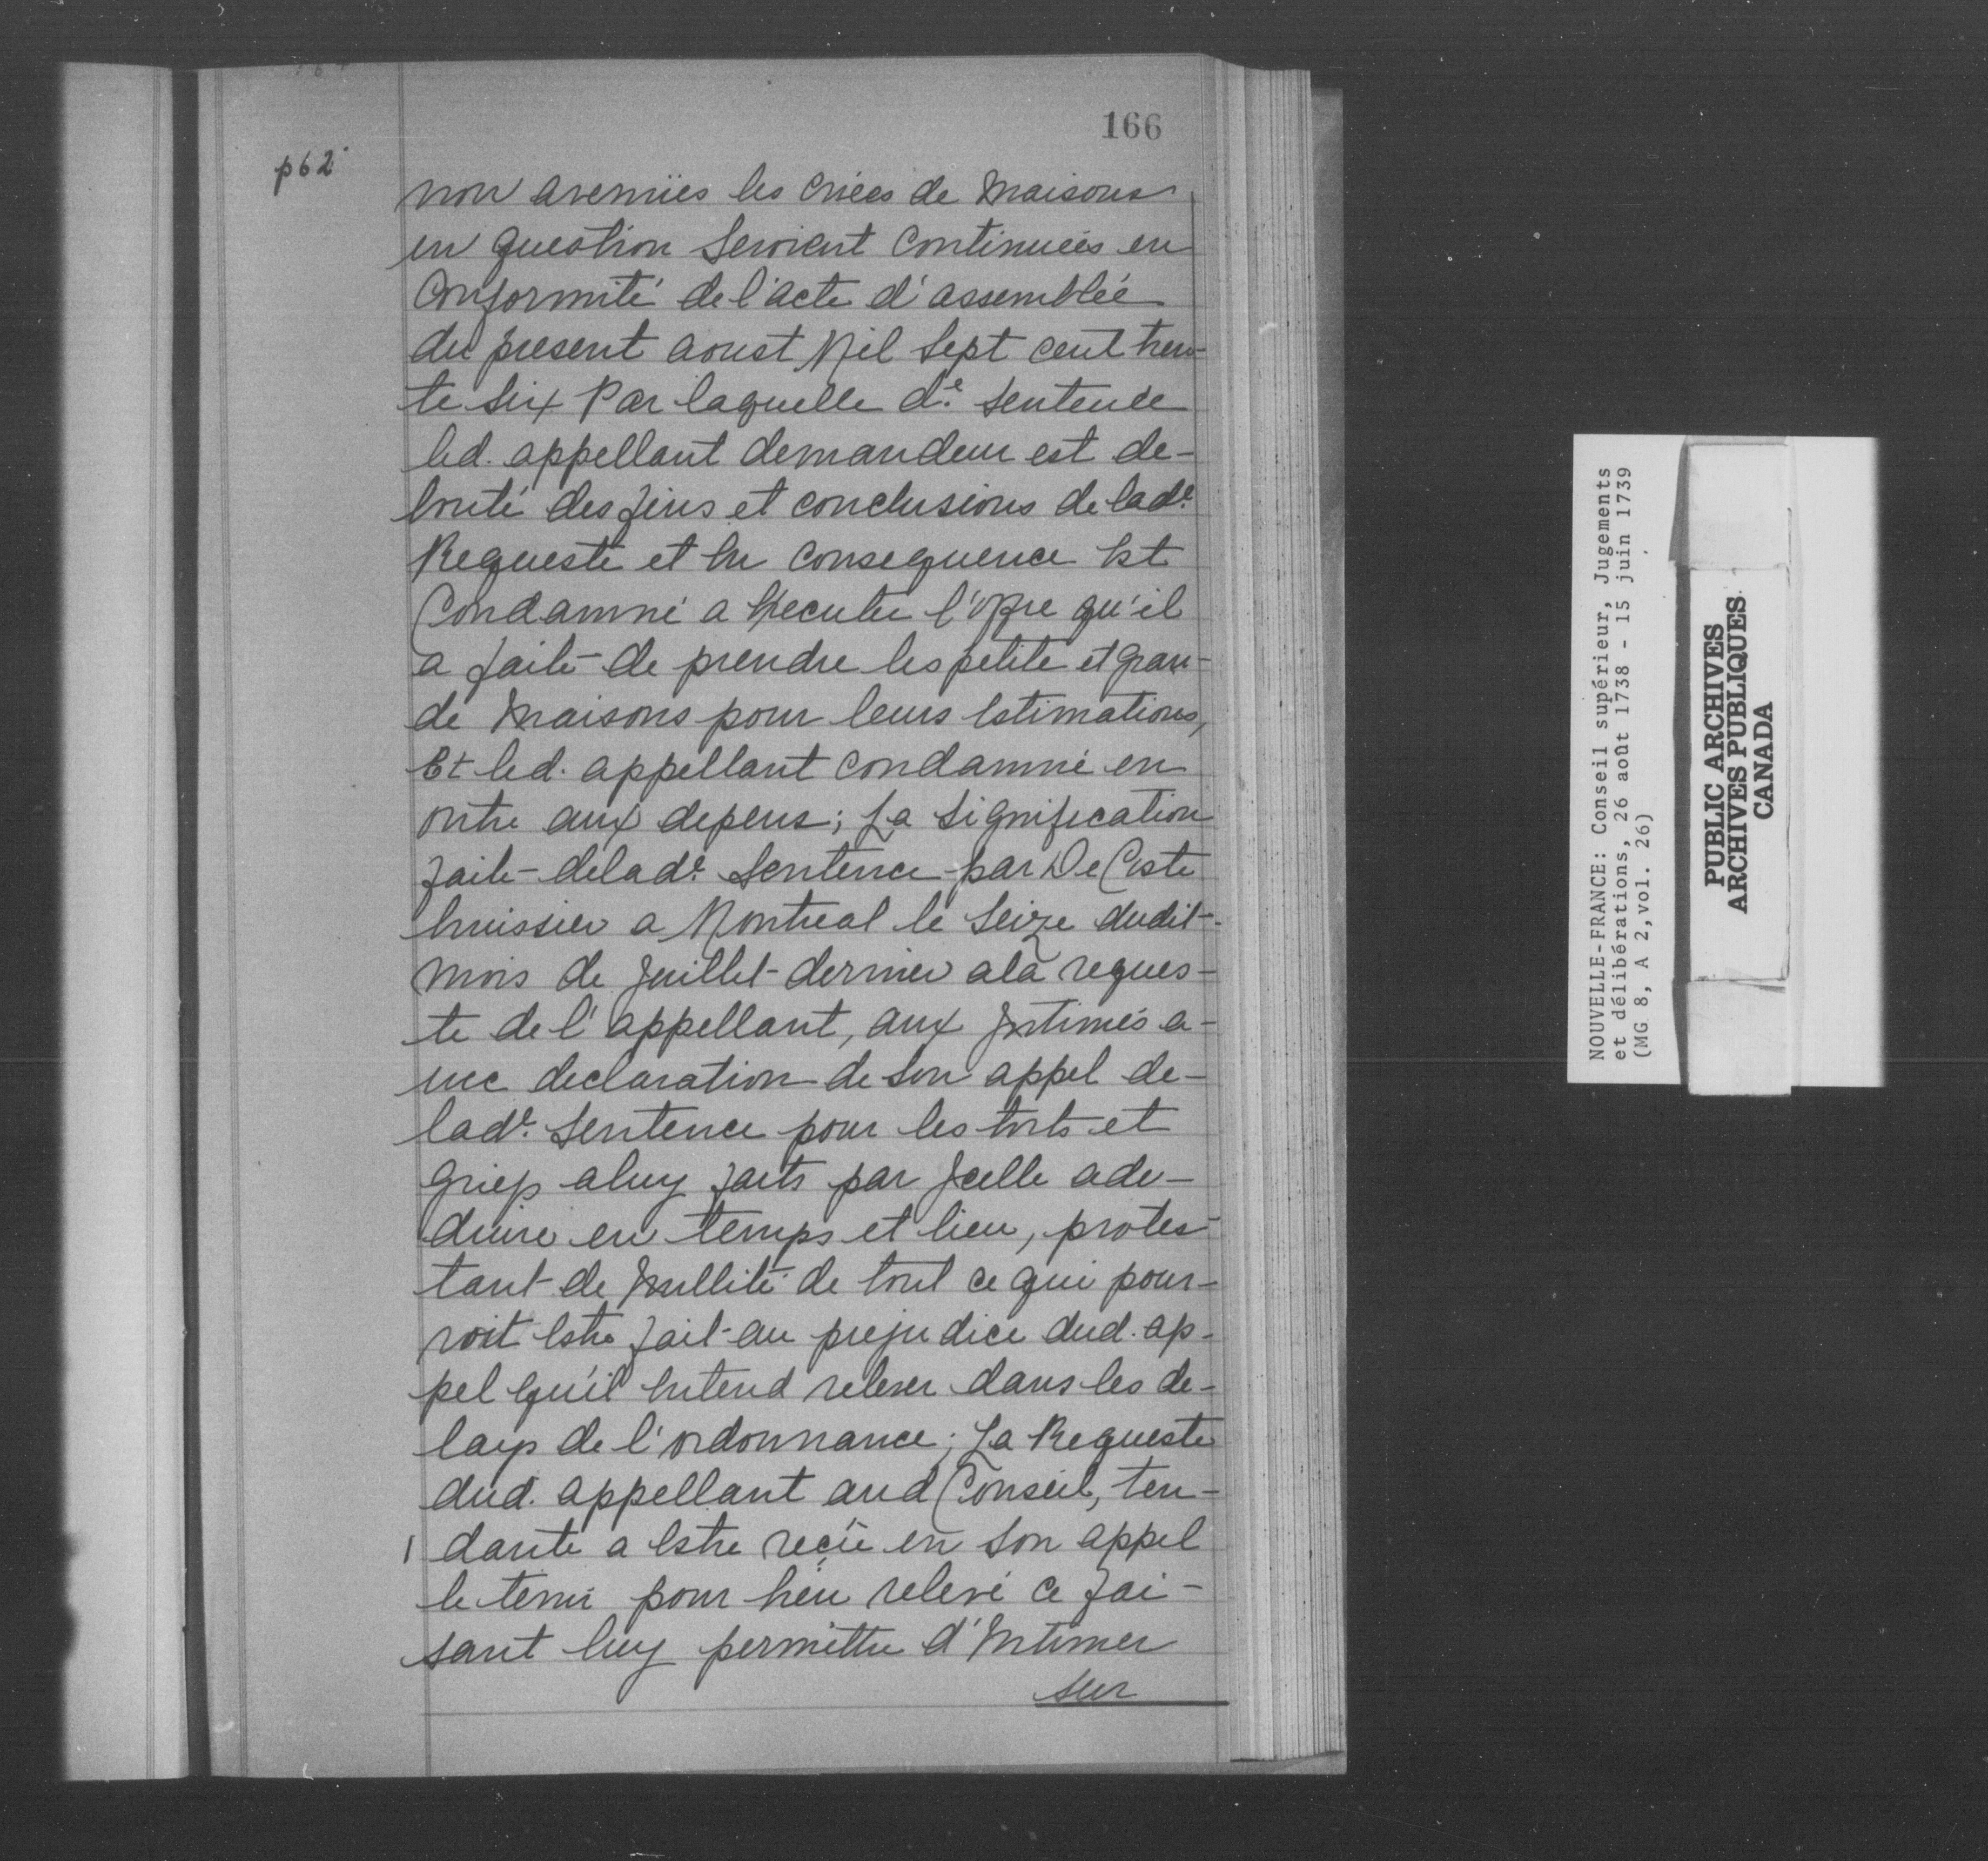 166
p 62
non avenües les criées de Maisons
en question Seroient Continuées en
Conformité de l'acte d'assemblée
du present aoust Mil Sept cent tren-
te Six Par laquelle d.e Sentence
led. appellant demandeur est de-
bouté des fins et conclusions de lad.e
Requeste et En Consequence Est
Condamné a Executer l'offre qu'il
a faite de prendre les petite et gran-
de Maisons pour leurs Estimations,
Et led. appellant Condamné en
outre aux depens; La Signification
faite de lad.e Sentence par De Coste
huissier a Montreal le Seize dudit
Mois de Juillet dernier a la reques-
te de l'appellant, aux Jntimés a-
vec declaration de Son appel de
lad.e Sentence pour les torts et
griefs a luy faits par Jcelle a de-
duire en temps et lieu, protes
tant de Nullité de tout ce qui pour-
roit Estre fait au prejudice dud. ap-
pel qu'il Entend relever dans les de-
lays de l'ordonnance; La Requeste
dud. appellant aud Conseil, ten-
1 dante a Estre reçü en Son appel
le tenir pour bien relevé ce fai-
sant luy permettre d'Intimer
sur
NOUVELLE-FRANCE: Conseil supérieur, Jugements
et délibérations, 26 août 1738 - 15 juin 1739
(MG 8, A 2, vol. 26)
PUBLIC ARCHIVES
ARCHIVES PUBLIQUES
CANADA